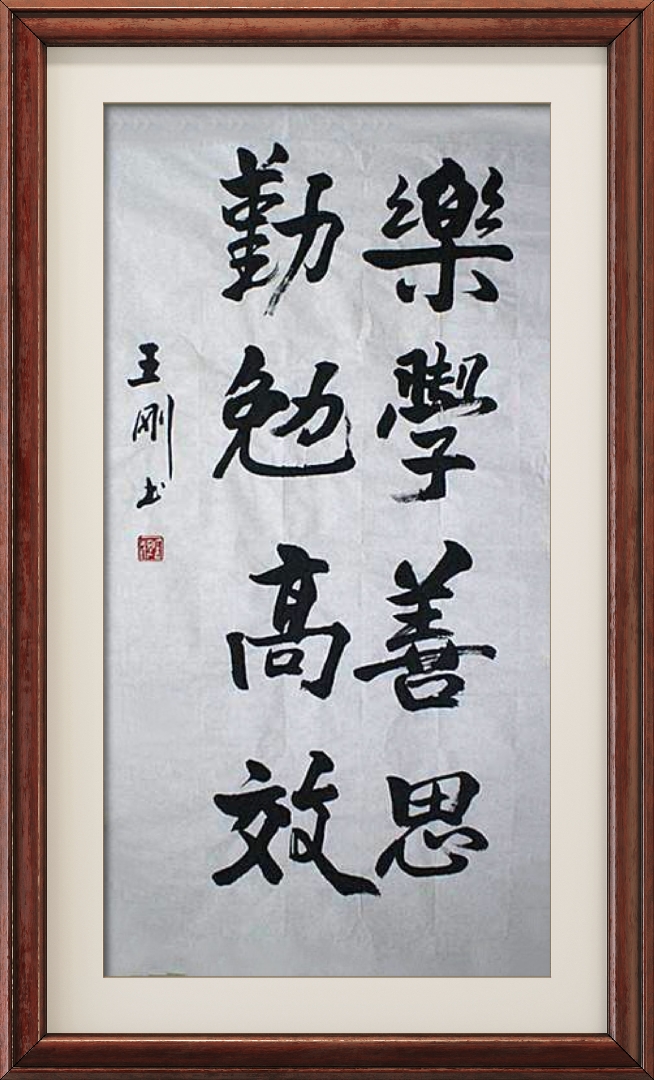 樂學善思
勤勉高效
王剛书